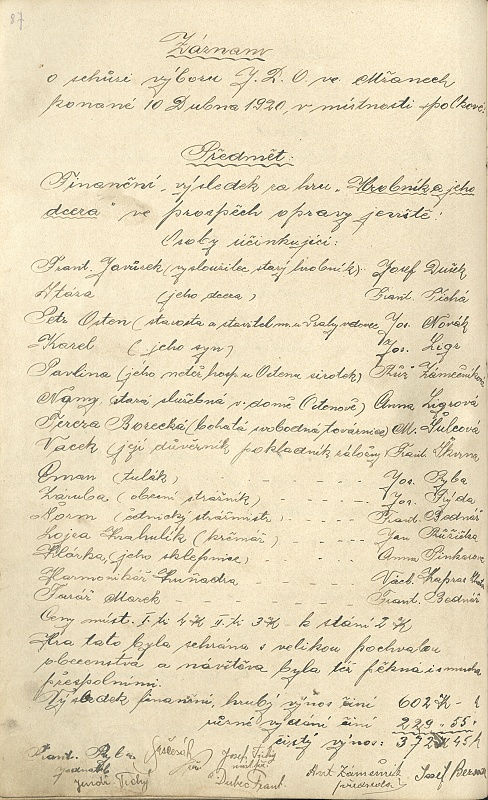 87
Záznam
o schůzi výboru J. D. O. ve Mžanech
konané 10 Dubna 1920, v místnosti spolkové.
Předmět:
Finanční, výsledek za hru „Hrobník a jeho
dcera" ve prospěch opravy jeviště!
Osoby účinkující:
Frant. Javůrek (vysloužilec starý hrobník) Josef Dušek
Klára (jeho dcera) Frant. Tichá
Petr Osten (starosta a stavitel m. u Prahy vdovec) Jos. Novák
Karel (jeho syn) Jos. Ligr
Pavlina (jeho neteř, hosp. u Ostena sirotek) Růž. Zámečníková
Nany, (stará služebná v domě Ostenově) Anna Ligrová
Tereza Borecká (bohatá svobodná továrnice) M. Šulcová
Vacek (její důvěrník pokladník záložny) Frant. Škvrna
Eman (tulák) - - - - Jos. Ryba
Záruba (obecní strážník) - - - - Jos. Rýda
Norm (četnický strážmistr) - - - Frant. Bednář
Lojza Krahulík (krčmář) - - - Jan Růžička
Klárka, (jeho sklepnice) - - - Anna Pinkasova
Harmonikář Kuňadra - - - - Václ. Kapras
Farář Marek - - - - Frant. Bednář
Ceny míst. I. tř. 4 K II. tř. 3 K - k stání 2 K
Hra tato byla sehrána s velikou pochvalou
obecenstva a návštěva byla též pěkná i s mnoha
přespolními.
Výsledek finanční, hrubý výnos činí 602 K - h
různé vydání činí 229 „ 55 „
čistý výnos: 372 K 45 h
Frant. Ryba Josef Tichý Ant. Zámečník Josef Beran
jednatel Dubec Frant. předseda
Jindř. Tichý